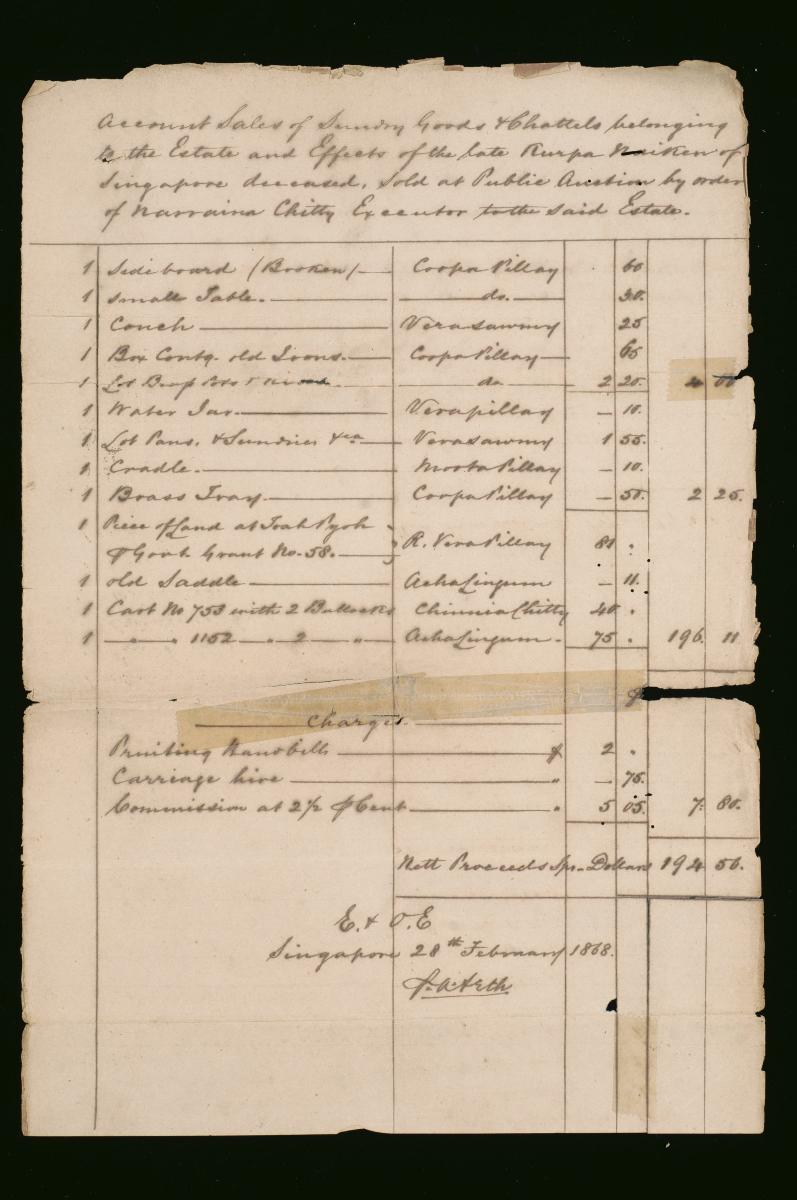 Account Sales of Sundry Goods & Chattels belonging
to the Estate and Effects of the late Kurpa Naiken of
Singapore deceased, Sold at Public Auction by order
of Narraina Chitty Executor to the said Estate.
1 Sideboard (Broken) Coopa Pillay 60
1 small Table. do. 30.
1 Couch Verasawmy 25
1 Box Contg. old Irons. Coopa Pillay 65
1 Lot do 2 20. 4 00
1 Water Jar. Verapillay — 10.
1 Lot Pans, & Sundries &ca Verasawmy 1 55.
1 Cradle. Moota Pillay — 10.
1 Brass Tray. Coopa Pillay — 50. 2 25.
1 Piece of Land at Toah Pyoh
Govt Grant No. 58. R. Vera Pillay 81 "
1 old Saddle AchaLingum — 11.
1 Cart No 753 with 2 Bullocks Chinnia Chitty 40 "
1 — " — 1152 — " 2 — " — AchaLingum. 75 " 196. 11
$
Charges.
Printing Handbills $ 2 "
Carriage hire " — 75.
Commission at 2½ P Cent " 5 05. 7. 80.
Nett Proceeds Spn. Dollars 194 56.
E. & O. E
Singapore 28th February 1868.